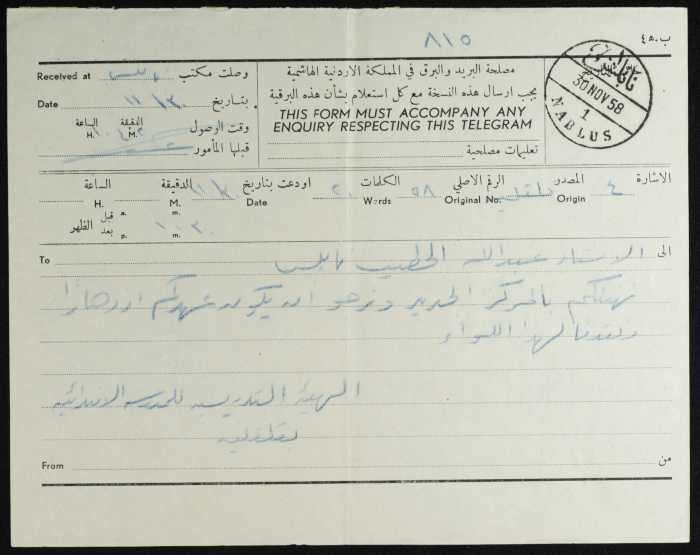 ٨١٥
ب.ه٤
Received at نابلس وصلت مكتب
Date ١١/٣٠ بتاريخ
الساعة الدقيقة وقت الوصول
H. M.
قبلها المأمور
مصلحة البريد والبرق في المملكة الاردنية الهاشمية
يجب ارسال هذه النسخة مع كل استعلام بشأن هذه البرقية
THIS FORM MUST ACCOMPANY ANY
ENQUIRY RESPECTING THIS TELEGRAM
تعليمات مصلحية
نابلس
30 NOV 58
1
NABLUS
الاشارة ٤ المصدر قلقيلية الرقم الاصلي ٥٨ الكلمات ٢٠ اودعت بتاريخ ١١/٣٠ الدقيقة الساعة
Origin Original No. Words Date M. H.
قبل a. m.
بعد الظهر p. m. ١٠٣٠
To الى
الاستاذ عبدالله الخطيب نابلس
نهنئكم بالمركز الجديد ونرجو ان يكون عهدكم ازدهارا
وتقدما لهذا اللواء
الهيئة التدريسية للمدرسة الابتدائية
قلقيلية
From من